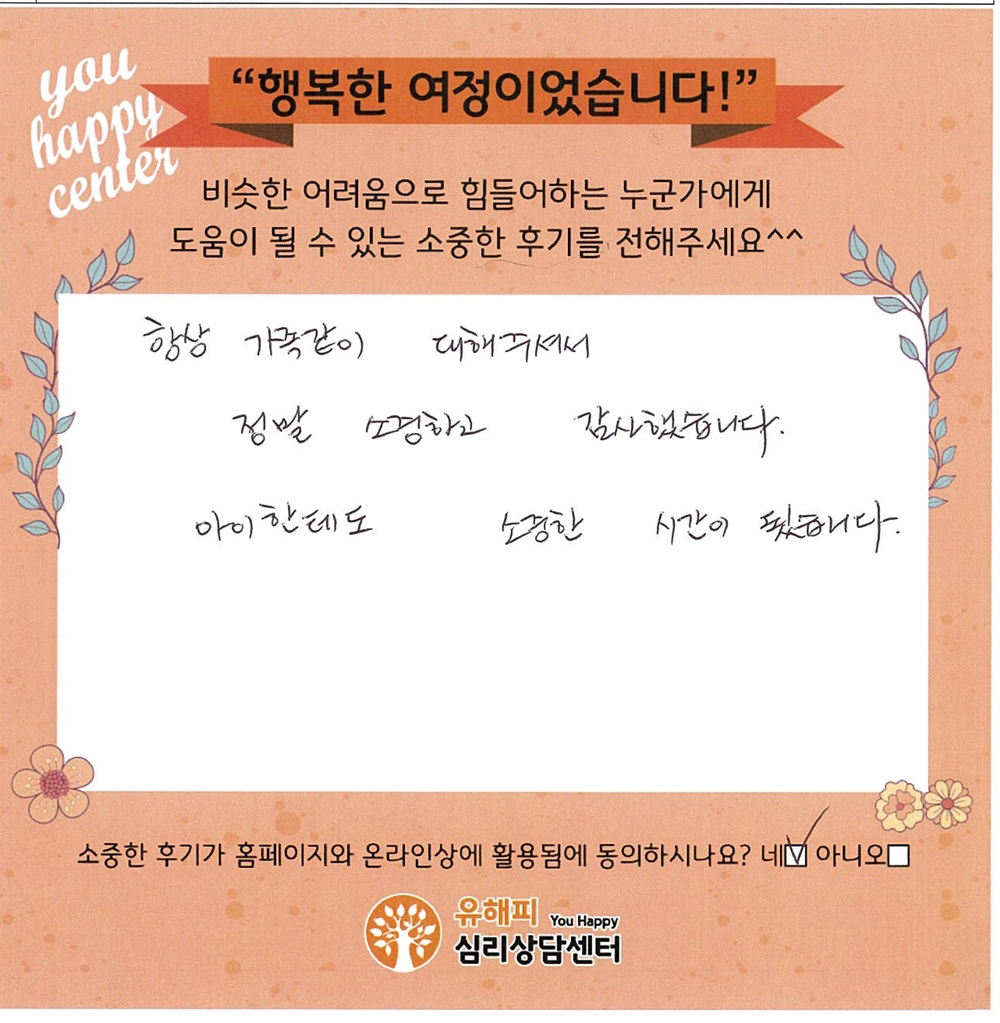 you
happy
center
“행복한 여정이었습니다!”
비슷한 어려움으로 힘들어하는 누군가에게
도움이 될 수 있는 소중한 후기를 전해주세요^^
항상 가족같이 대해주셔서
정말 소경하고 감사했습니다.
아이한테도 소경한 시간이 됬습니다.
소중한 후기가 홈페이지와 온라인상에 활용됨에 동의하시나요? 네 아니오
유해피 You Happy
심리상담센터